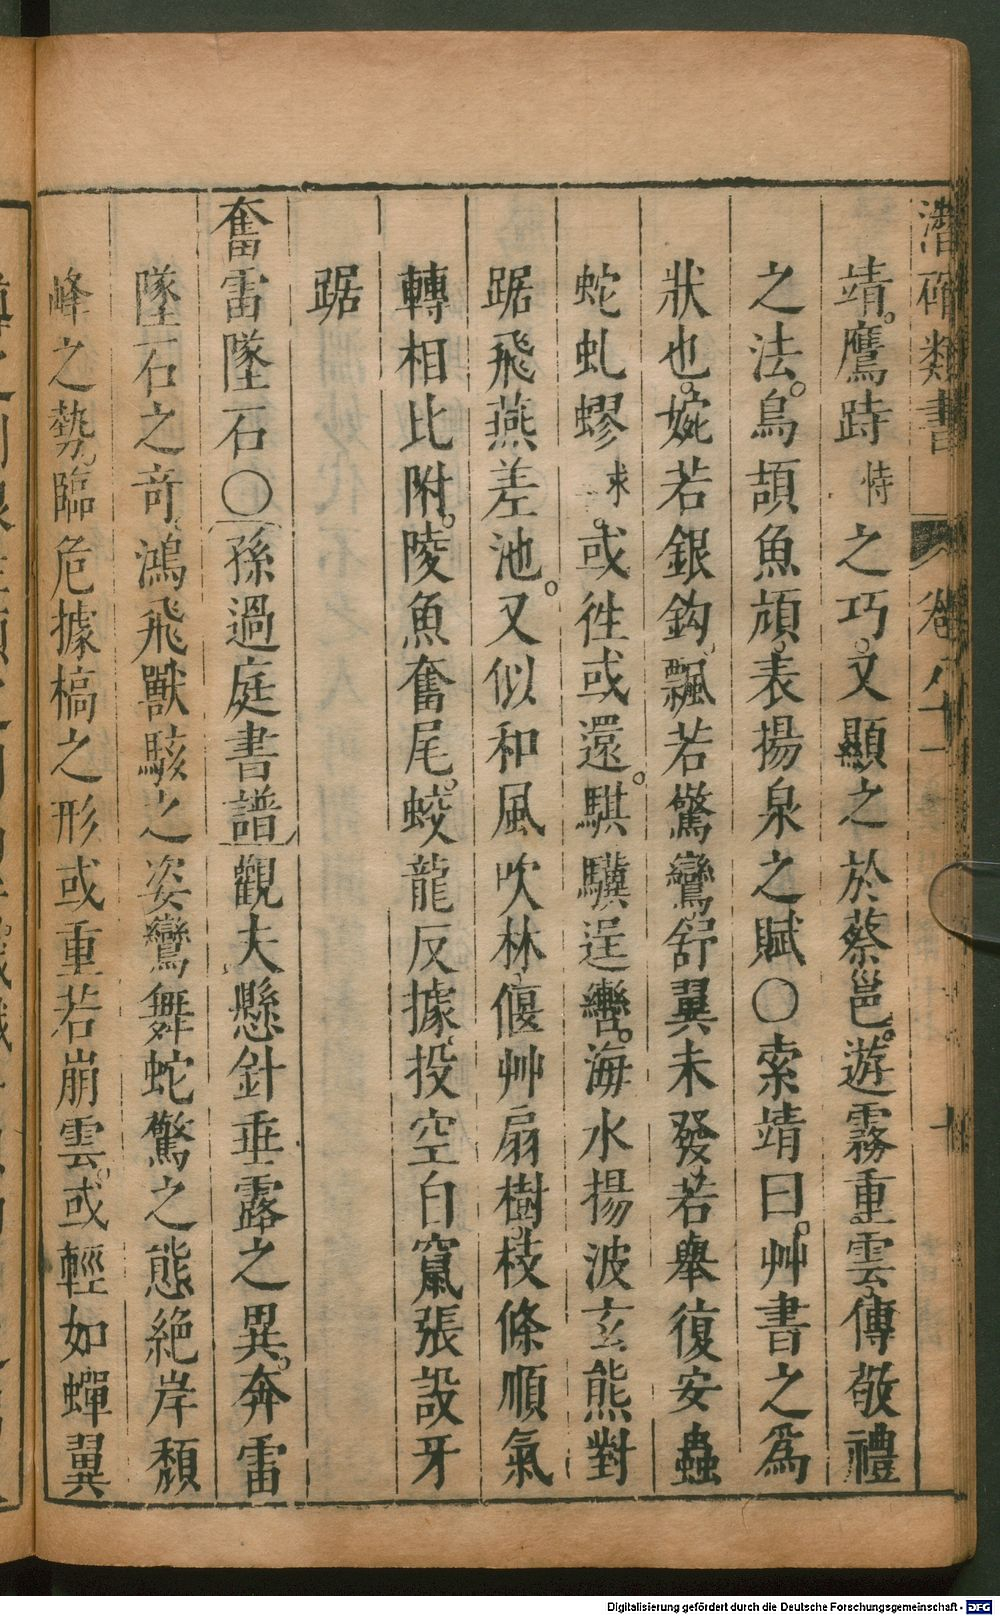 潛確類書 卷八十一 十
靖。鷹跱恃之巧。又顯之於蔡邕。遊霧重雲、傳敬禮
之法。鳥頡魚頏、表揚泉之賦〇索靖曰。艸書之為
狀也。婉若銀鈎、飄若驚鸞、舒翼未發、若舉復安、蟲
蛇虬蟉求。或徃或還。騏驥逞轡。海水揚波、玄熊對
踞、飛燕差池。又似和風吹林、偃艸扇樹、枝條順氣
轉相比附。陵魚奮尾。蛟龍反據、投空自竄、張設牙
踞
奮雷墜石〇孫過庭書譜觀夫懸針垂露之異。奔雷
墜石之奇、鴻飛獸駭之姿、鸞舞蛇驚之態、絶岸頹
峰之勢、臨危據槁之形、或重若崩雲。或輕如蟬翼
Digitalisierung gefördert durch die Deutsche Forschungsgemeinschaft - DFG